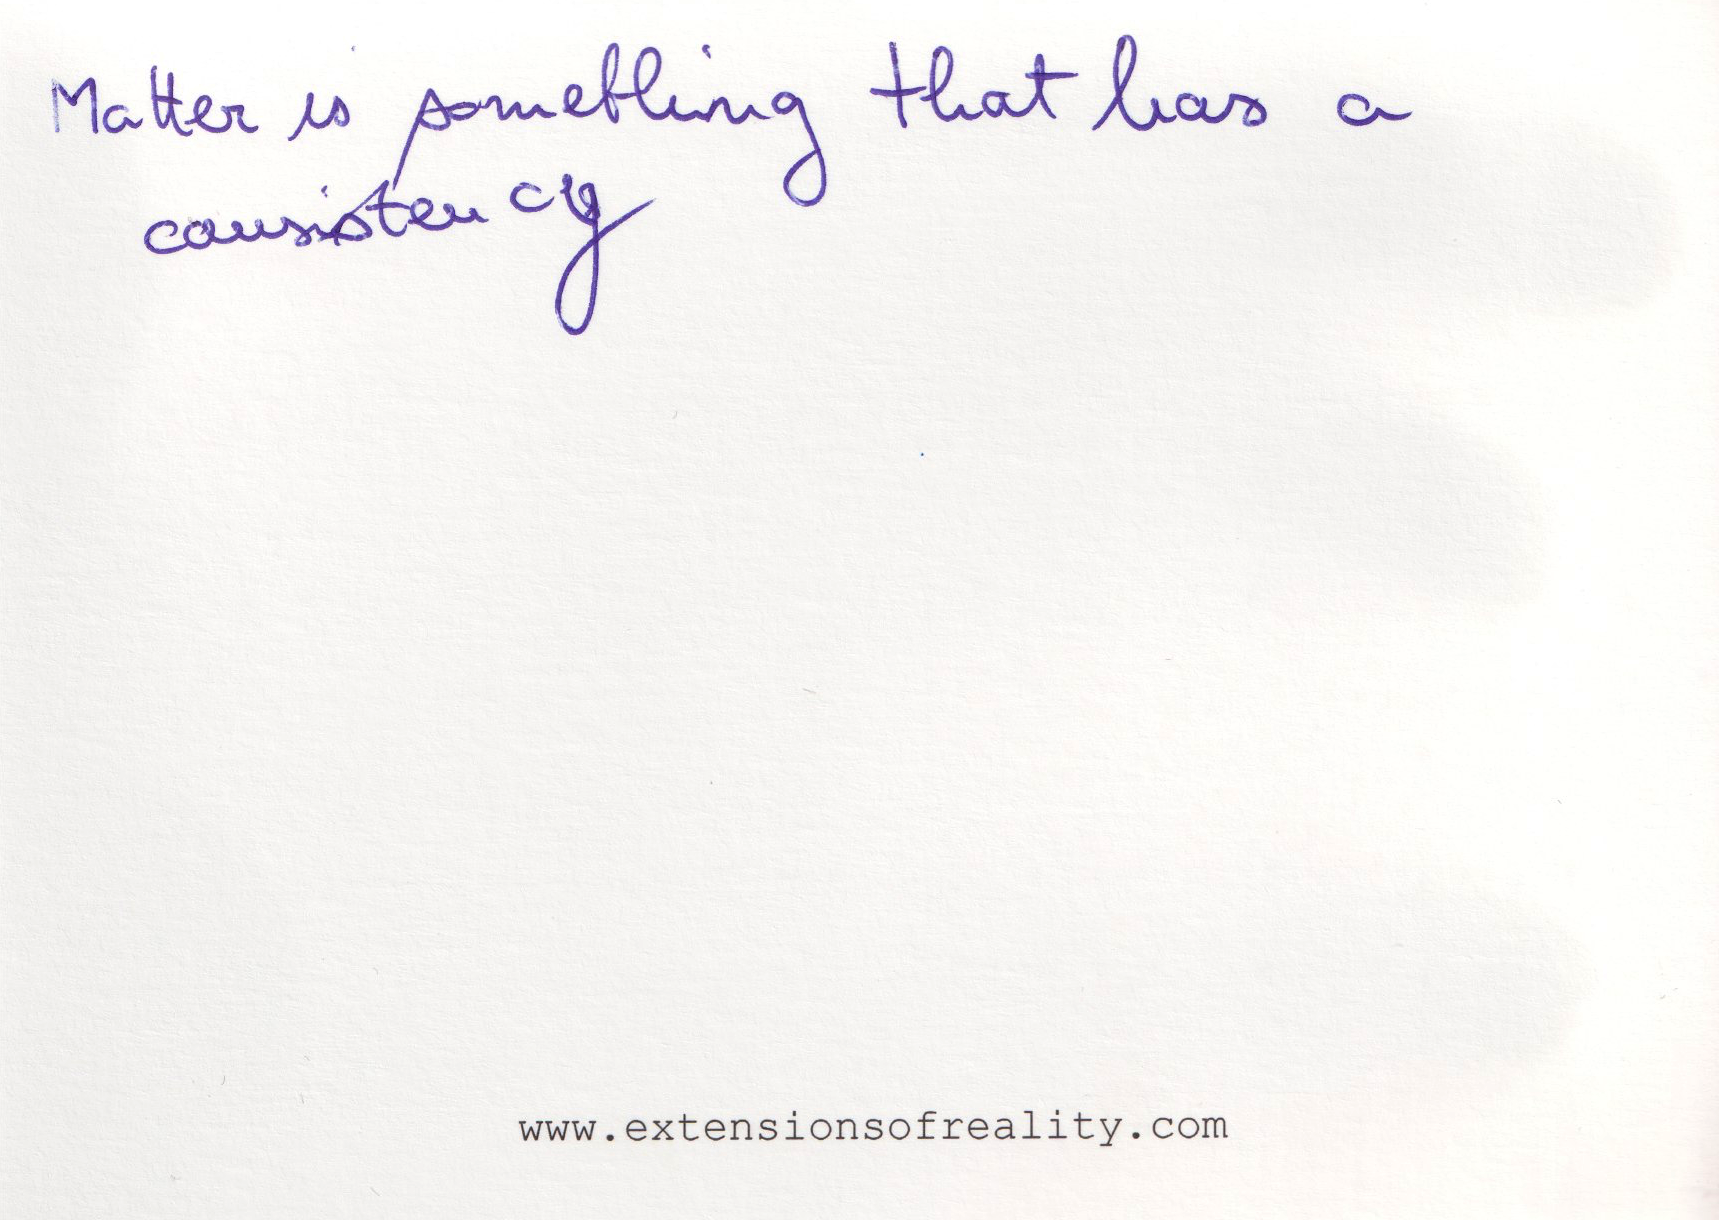 Matter is something that has a
consistency
www.extensionsofreality.com